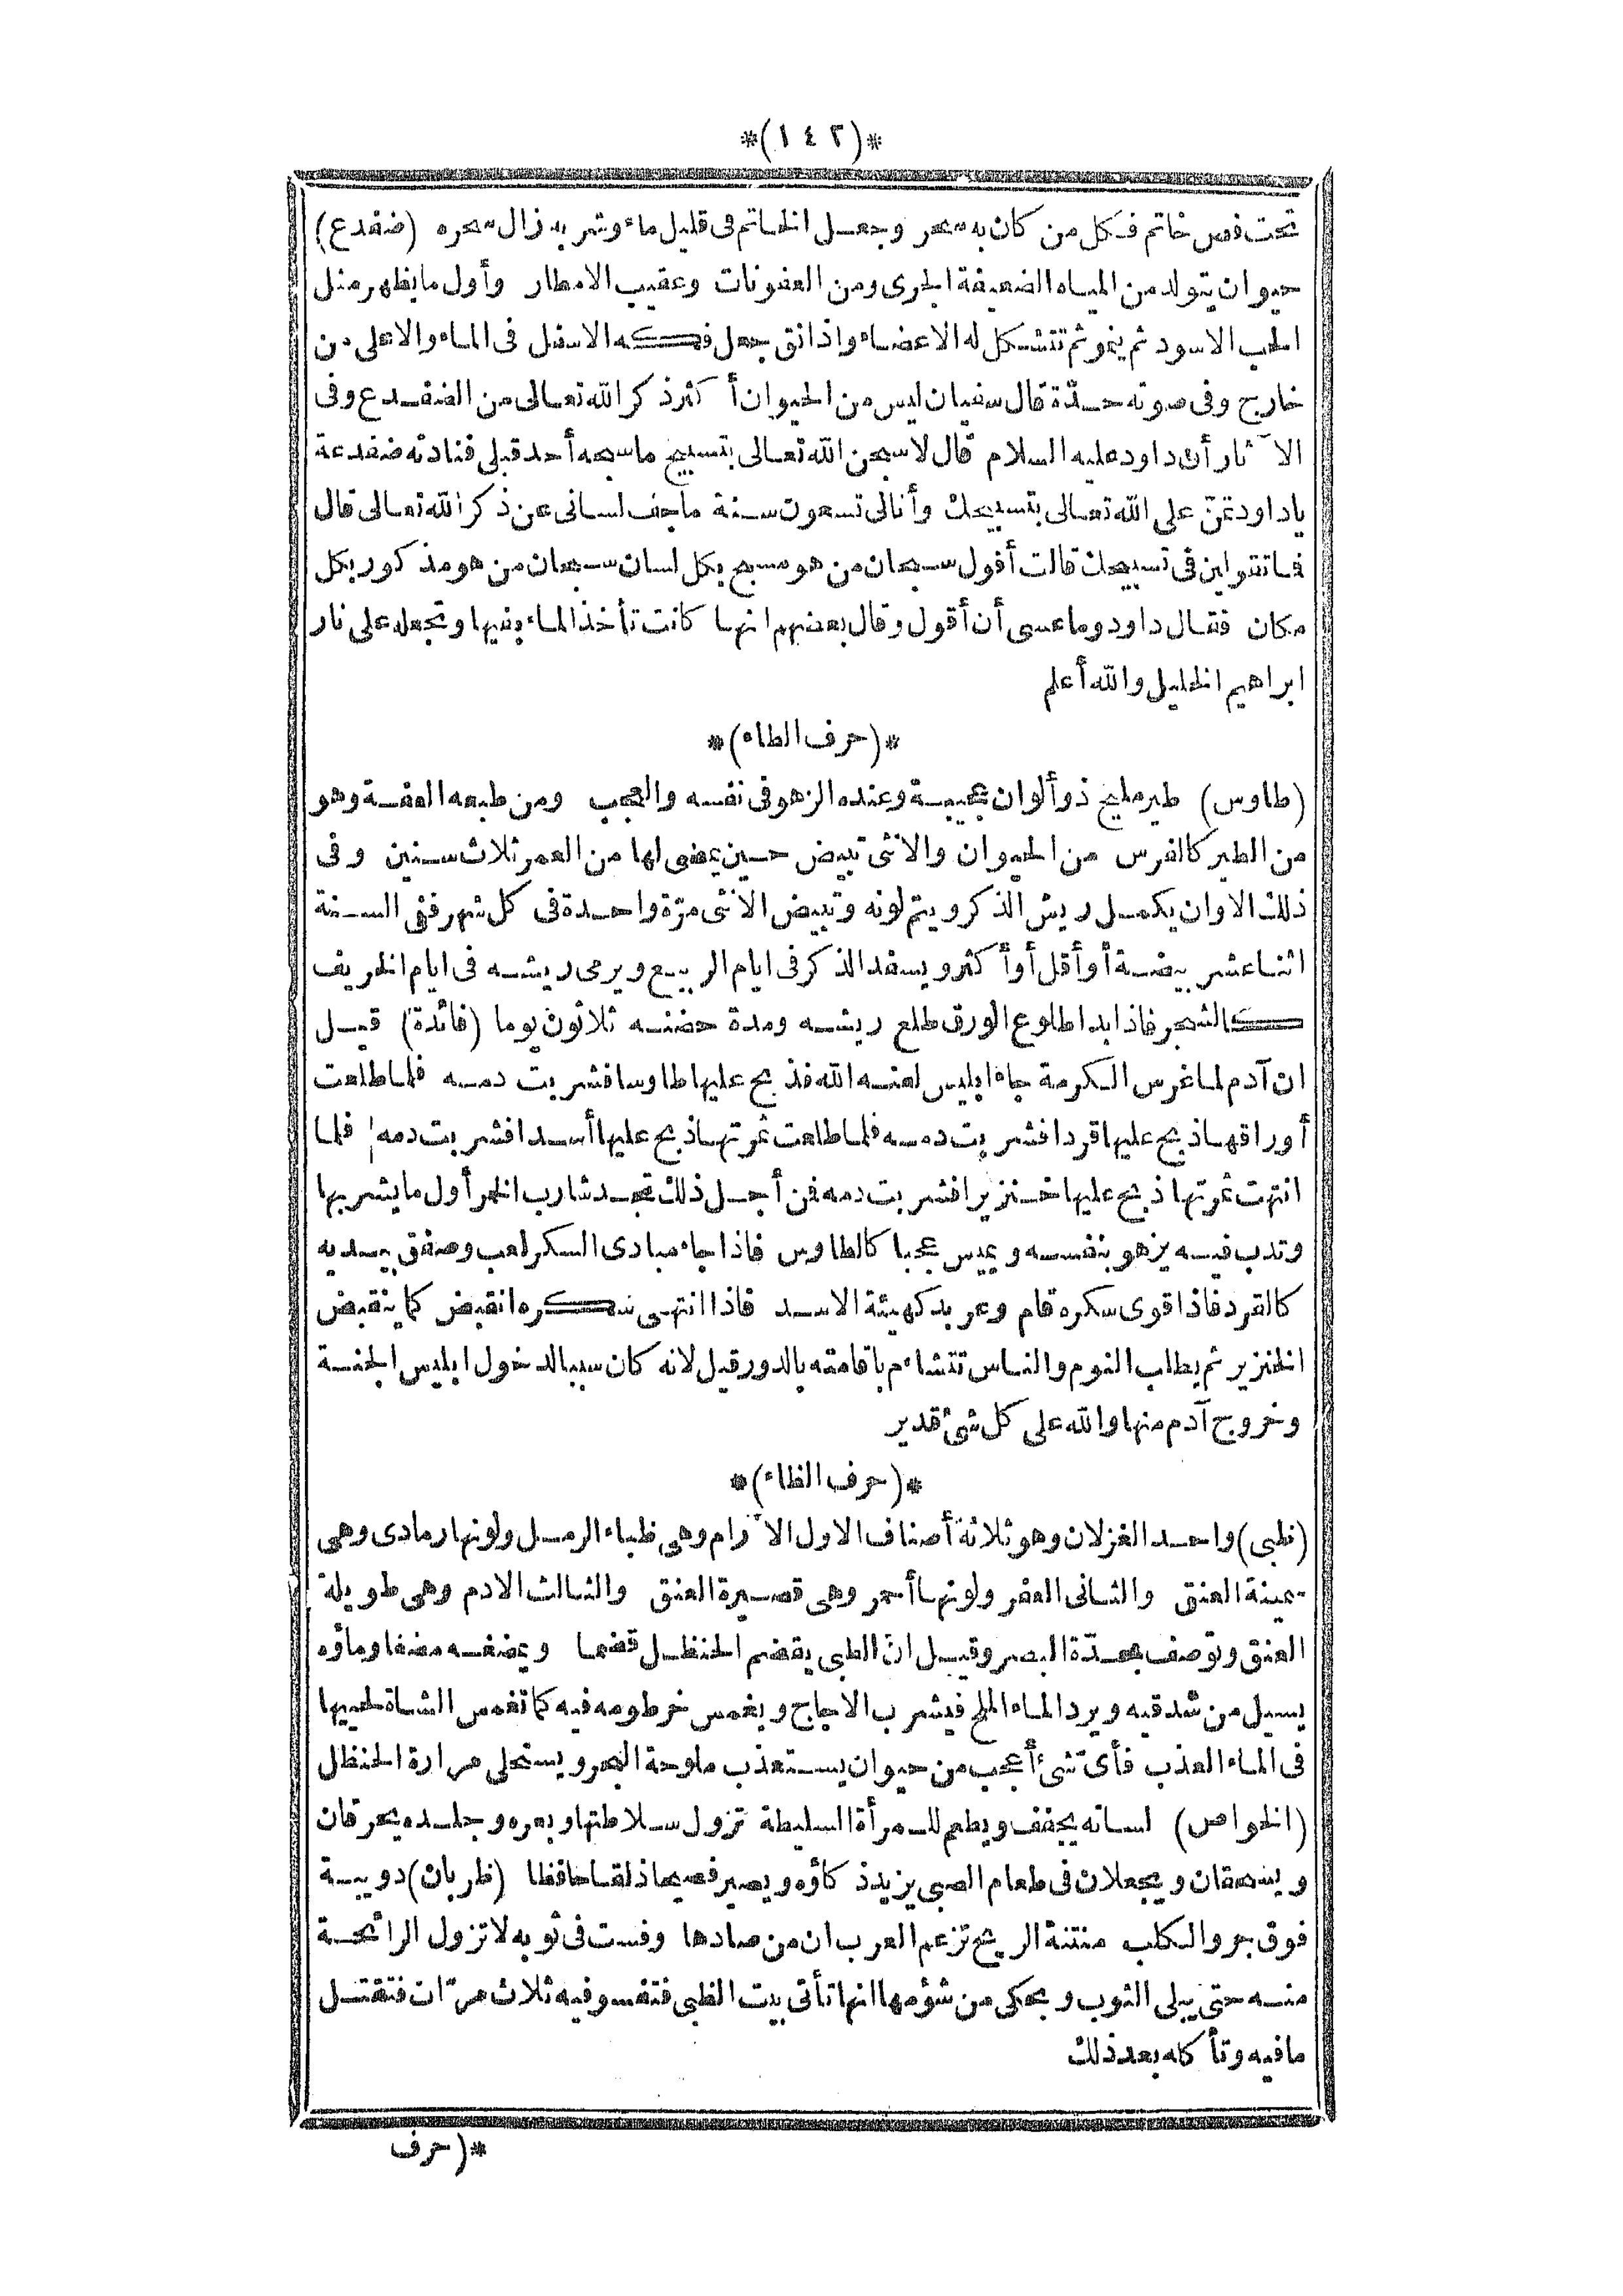 *(١٤٢)*
تحت فص خاتم فكل من كان به سحر وجعل الخاتم فى قليل ماء وشربه زال سحره (ضفدع)
حيوان يتولد من المياه الضعيفة الجرى ومن العفونات وعقيب الامطار وأول ما يظهر مثل
الحب الاسود ثم ينمو ثم تتشكل له الاعضاء واذا نق جعل فكه الاسفل فى الماء والاعلى من
خارج وفى صوته حدّة قال سفيان ليس من الحيوان أكثر ذكرا لله تعالى من الضفدع وفى
الآثار أن داود عليه السلام قال لاسبحن الله تعالى بتسبيح ما سبحه أحد قبلى فنادته ضفدعة
ياداود تمنّ على الله تعالى بتسبيحك وأنا لى تسعون سنة ما جف لسانى عن ذكر الله تعالى قال
فما تقولين فى تسبيحك قالت أقول سبحان من هو مسبح بكل لسان سبحان من هو مذكور بكل
مكان فقال داود وما عسى أن أقول وقال بعضهم انها كانت تأخذ الماء بفيها وتجعله على نار
ابراهيم الخليل والله أعلم
*(حرف الطاء)*
(طاوس) طير مليح ذو ألوان عجيبة وعنده الزهو فى نفسه والعجب ومن طبعه العفة وهو
من الطير كالفرس من الحيوان والانثى تبيض حين يمضى لها من العمر ثلاث سنين وفى
ذلك الاوان يكمل ريش الذكر ويتم لونه وتبيض الانثى مرّة واحدة فى كل شهر ففى السنة
اثنا عشر بيضة أو أقل أو أكثر ويسفد الذكر فى ايام الربيع ويرمى ريشه فى ايام الخريف
كالشجر فاذا بدا طلوع الورق طلع ريشه ومدة حضنه ثلاثون يوما (فائدة) قيل
ان آدم لما غرس الكرمة جاء ابليس لعنه الله فذبح عليها طاوسا فشربت دمه فلما طلعت
أوراقها ذبح عليها قردا فشربت دمه فلما طلعت ثمرتها ذبح عليها أسدا فشربت دمه فلما
انتهت ثمرتها ذبح عليها خنزيرا فشربت دمه فن أجل ذلك تجد شارب الخمر أول ما يشربها
وتدب فيه يزهو بنفسه ويميس عجبا كالطاوس فاذا جاء مبادى السكر لعب وصفق بيديه
كالقرد فاذا قوى سكره قام وعربد كهيئة الاسد فاذا انتهى سكره انقبض كما ينقبض
الخنزير ثم يطلب النوم والناس تتشاءم باقامته بالدور قيل لانه كان سببا لدخول ابليس الجنة
وخروج آدم منها والله على كل شئ قدير
*(حرف الظاء)*
(ظبى) واحد الغزلان وهو ثلاثة أصناف الاول الآرام وهى ظباء الرمل ولونها رمادى وهى
سمينة العنق والثانى العفر ولونها أحمر وهى قصيرة العنق والثالث الادم وهى طويلة
العنق وتوصف بحدّة البصر وقيل انّ الظبى يقضم الحنظل قضما ويمضغه مضغا وماؤه
يسيل من شدقيه ويرد الماء الملح فيشرب الاجاج ويغمس خرطومه فيه كما تغمس الشاة لحييها
فى الماء العذب فأىّ شئ أعجب من حيوان يستعذب ملوحة البحر ويستحلى مرارة الحنظل
(الخواص) لسانه يجفف ويطعم للمرأة السليطة تزول سلاطتها وبعره وجلده يحرقان
ويسحقان ويجعلان فى طعام الصبى يزيد ذكاؤه ويصير فصيحا ذلقا حافظا (ظربان) دويبة
فوق جرو الكلب منتنة الريح تزعم العرب ان من صادها وفست فى ثوبه لا تزول الرائحة
منه حتى يبلى الثوب ويحكى من شؤمها انها تأتى بيت الظبى فتفسو فيه ثلاث مرّات فتقتل
ما فيه وتأكله بعد ذلك
*(حرف